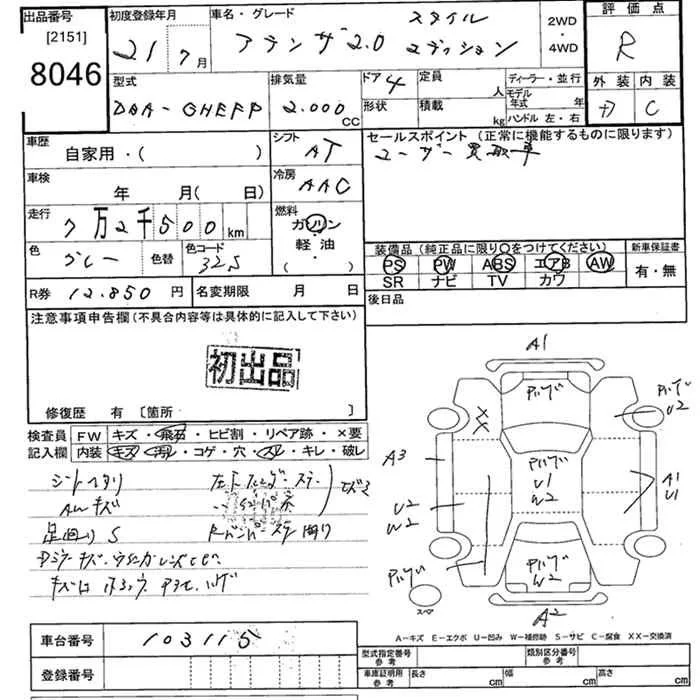 出品番号 初度登録年月 車名・グレード 2WD 評価点
[2151] 21年7月 アテンザ2.0 スタイルエディション ・ R
8046 4WD
型式 排気量 ドア 4 定員 人 ディーラー・並行 外装 内装
DBA-GHEFP 2.000CC 形状 積載 kg モデル年式 年 C
ハンドル 左・右
車歴 シフト セールスポイント(正常に機能するものに限ります)
自家用・( ) AT ユーザー買取車
車検 冷房
年 月(日) AAC
走行 燃料
7万2千500km ガソリン
色 色替 色コード 軽油 装備品(純正品に限り○をつけてください) 新車保証書
グレー 32S ・( ) PS PW ABS エアB AW 有・無
R券 12.850円 名変期限 月 日 SR ナビ TV カワ
注意事項申告欄(不具合内容等は具体的に記入して下さい) 後日品
初出品
修復歴 有 [箇所 ]
検査員 FW キズ・飛石・ヒビ割・リペア跡・×要
記入欄 内装 キズ・汚レ・コゲ・穴・スレ・キレ・破レ
シートヘタリ
AWキズ
足回りS
A1
A3
U2
W2
U1
W2
A1
U1
U2
W2
A2
スペア
A-キズ E-エクボ U-凹み W-補修跡 S-サビ C-腐食 XX-交換済
車台番号 103115
登録番号
型式指定番号 参考 類別区分番号 参考
車庫証明用 参考 長さ cm 幅 cm 高さ cm